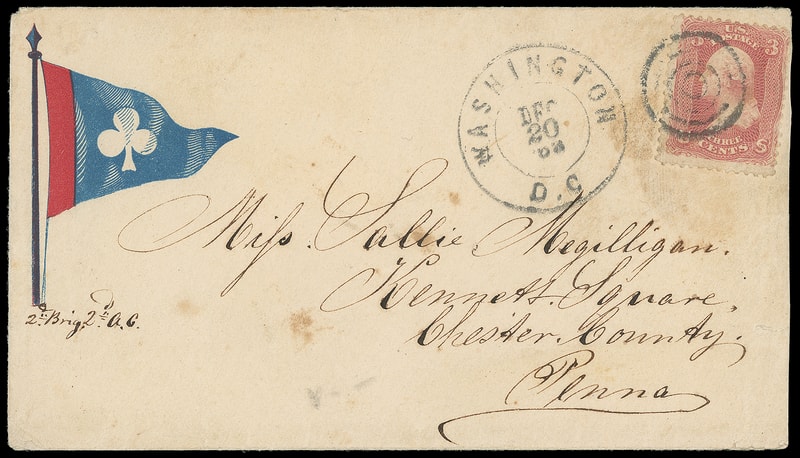 WASHINGTON
DEC
20
D.C
U.S. POSTAGE
3
THREE
CENTS
Miss Sallie Megilligan.
Kennett Square,
Chester County.
Penna
2d Brig. 2d A.C.